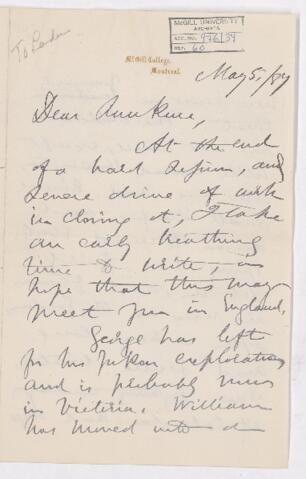 McGILL UNIVERSITY
ARCHIVES
ACC. NO. 976/39
REF. 60
To London
McGill College,
Montreal.
May 5/87
Dear
At the end
of a hard session, and
severe drive of work
in closing it, I take
an early breathing
time to write, in
hope that this may
meet you in England.
George has left
for his Yukon exploration
and is probably now
in Victoria. William
has moved into a